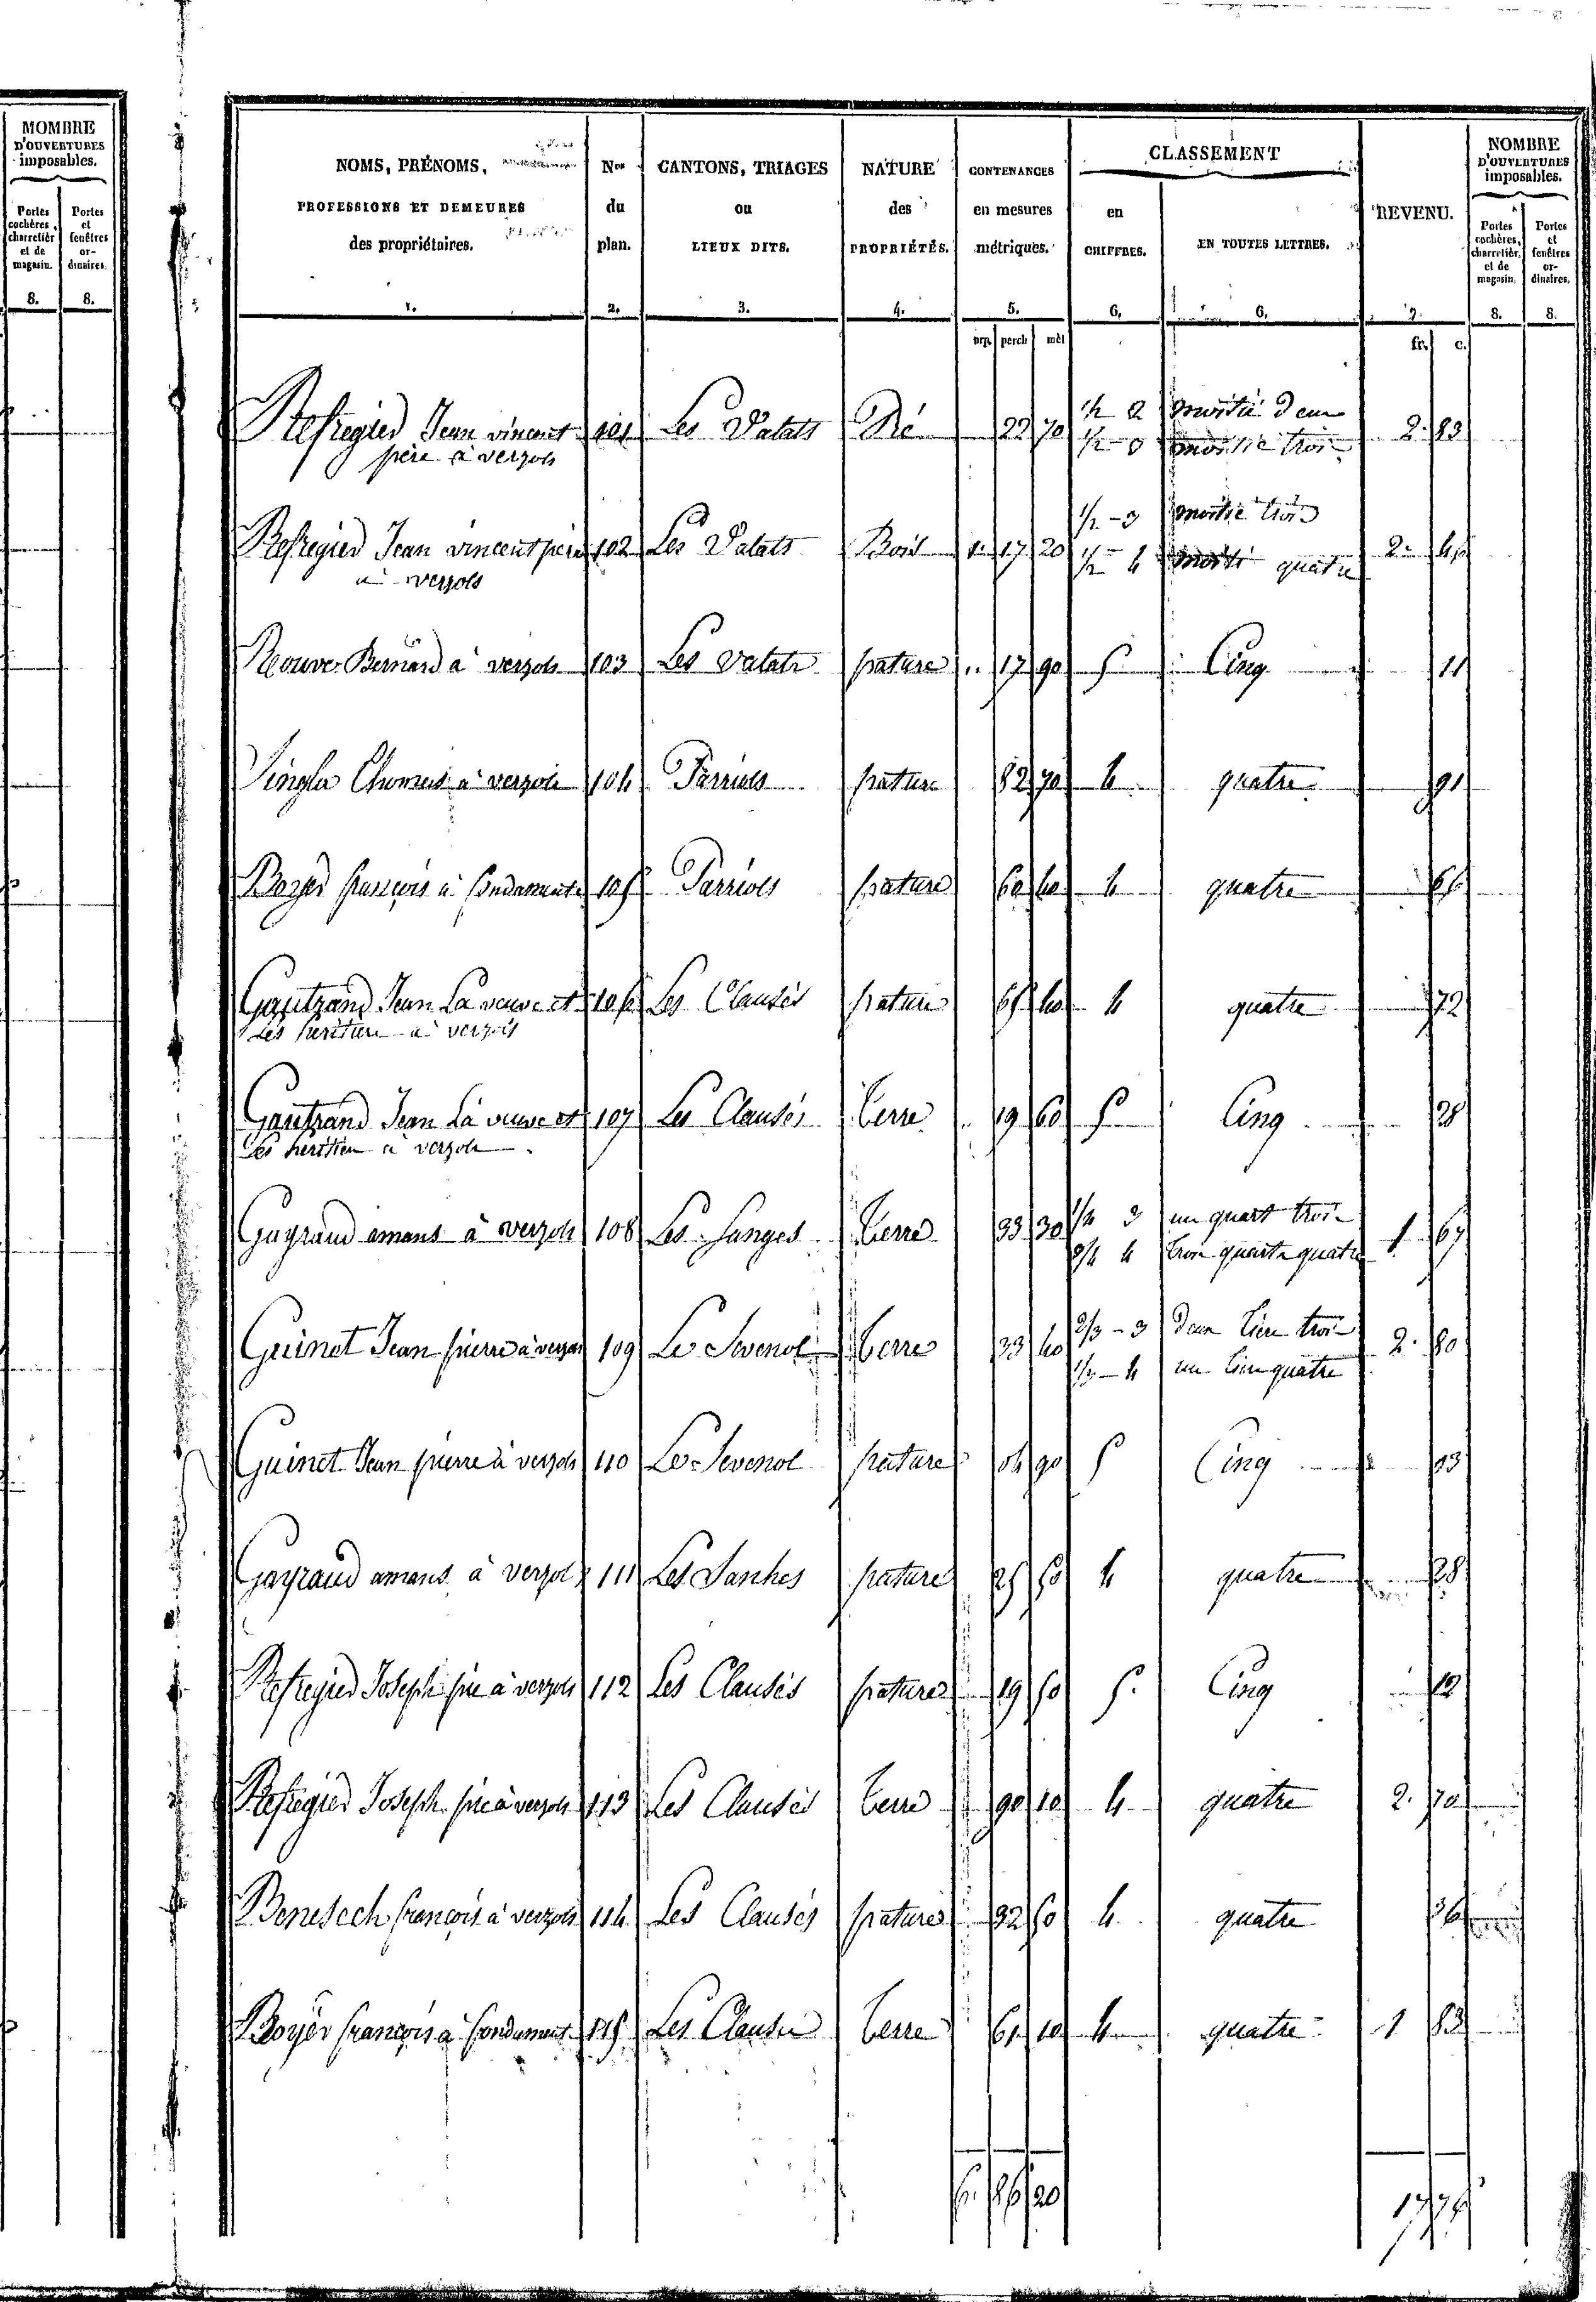 MOMBRE
D'OUVERTURES
imposables.
Portes cochères, charretièr et de magasin.
Portes et fenêtres or- dinaires.
8. 8.
NOMS, PRÉNOMS,
PROFESSIONS ET DEMEURES
des propriétaires.
1.
Nos du plan.
2.
CANTONS, TRIAGES
ou
LIEUX DITS.
3.
NATURE
des
PROPRIÉTÉS.
4.
CONTENANCES
en mesures
métriques.
5.
CLASSEMENT
en
CHIFFRES.
6.
EN TOUTES LETTRES.
6.
REVENU.
7.
NOMBRE
D'OUVERTURES
imposables.
Portes cochères, charretièr. et de magasin.
Portes et fenêtres or- dinaires.
8. 8.
arp. perch mèt
fr. c.
Refregier Jean vincent 101 Les Valats Pré 22 70 1/2 2 moitié deux 2. 83
père à verzols 1/2 3 moitié trois
Refregier Jean vincent père 102 Les Valats Bois 1. 17 20 1/2 - 3 moitié trois 2.
à verzols 1/2 - 4 moitié quatre
Rouve Bernard à verzols 103 Les Valats pature 17 90 5 Cinq 11
à verzols 104 Parriols pature 82 70 4 quatre 91
Boyer françois à 105 Parriols pature 60 40 4 quatre
Gautrand Jean La veuve et 106 Les Clausès pature 65 40 4 quatre 72
Les héritiers à verzols
Gautrand Jean La veuve et 107 Les Clausès terre 19 60 5 Cinq
Les héritiers à verzols
Gayraud amans à verzols 108 Les terre 33 30 1/4 3 un quart trois 1 67
3/4 4 trois quarts quatre
Guinet Jean pierre à verzols 109 Le Sevenol terre 33 40 2/3 - 3 deux tiers trois 2. 80
1/3 - 4 un tiers quatre
Guinet Jean pierre à verzols 110 Le Sevenol pature 04 90 5 Cinq 03
Gayraud amans à verzols 111 Les Sanhes pature 25 50 4 quatre 28
Refregier Joseph père à verzols 112 Les Clausès pature 19 50 5. Cinq 12
Refregier Joseph père à verzols 113 Les Clausès terre 90 10 4 quatre 2. 70
Benesech françois à verzols 114 Les Clausès pature 32 50 4. quatre 36
Boyer françois à 115 Les Clausès terre 61 10 4 quatre 1 83
6. 86 20